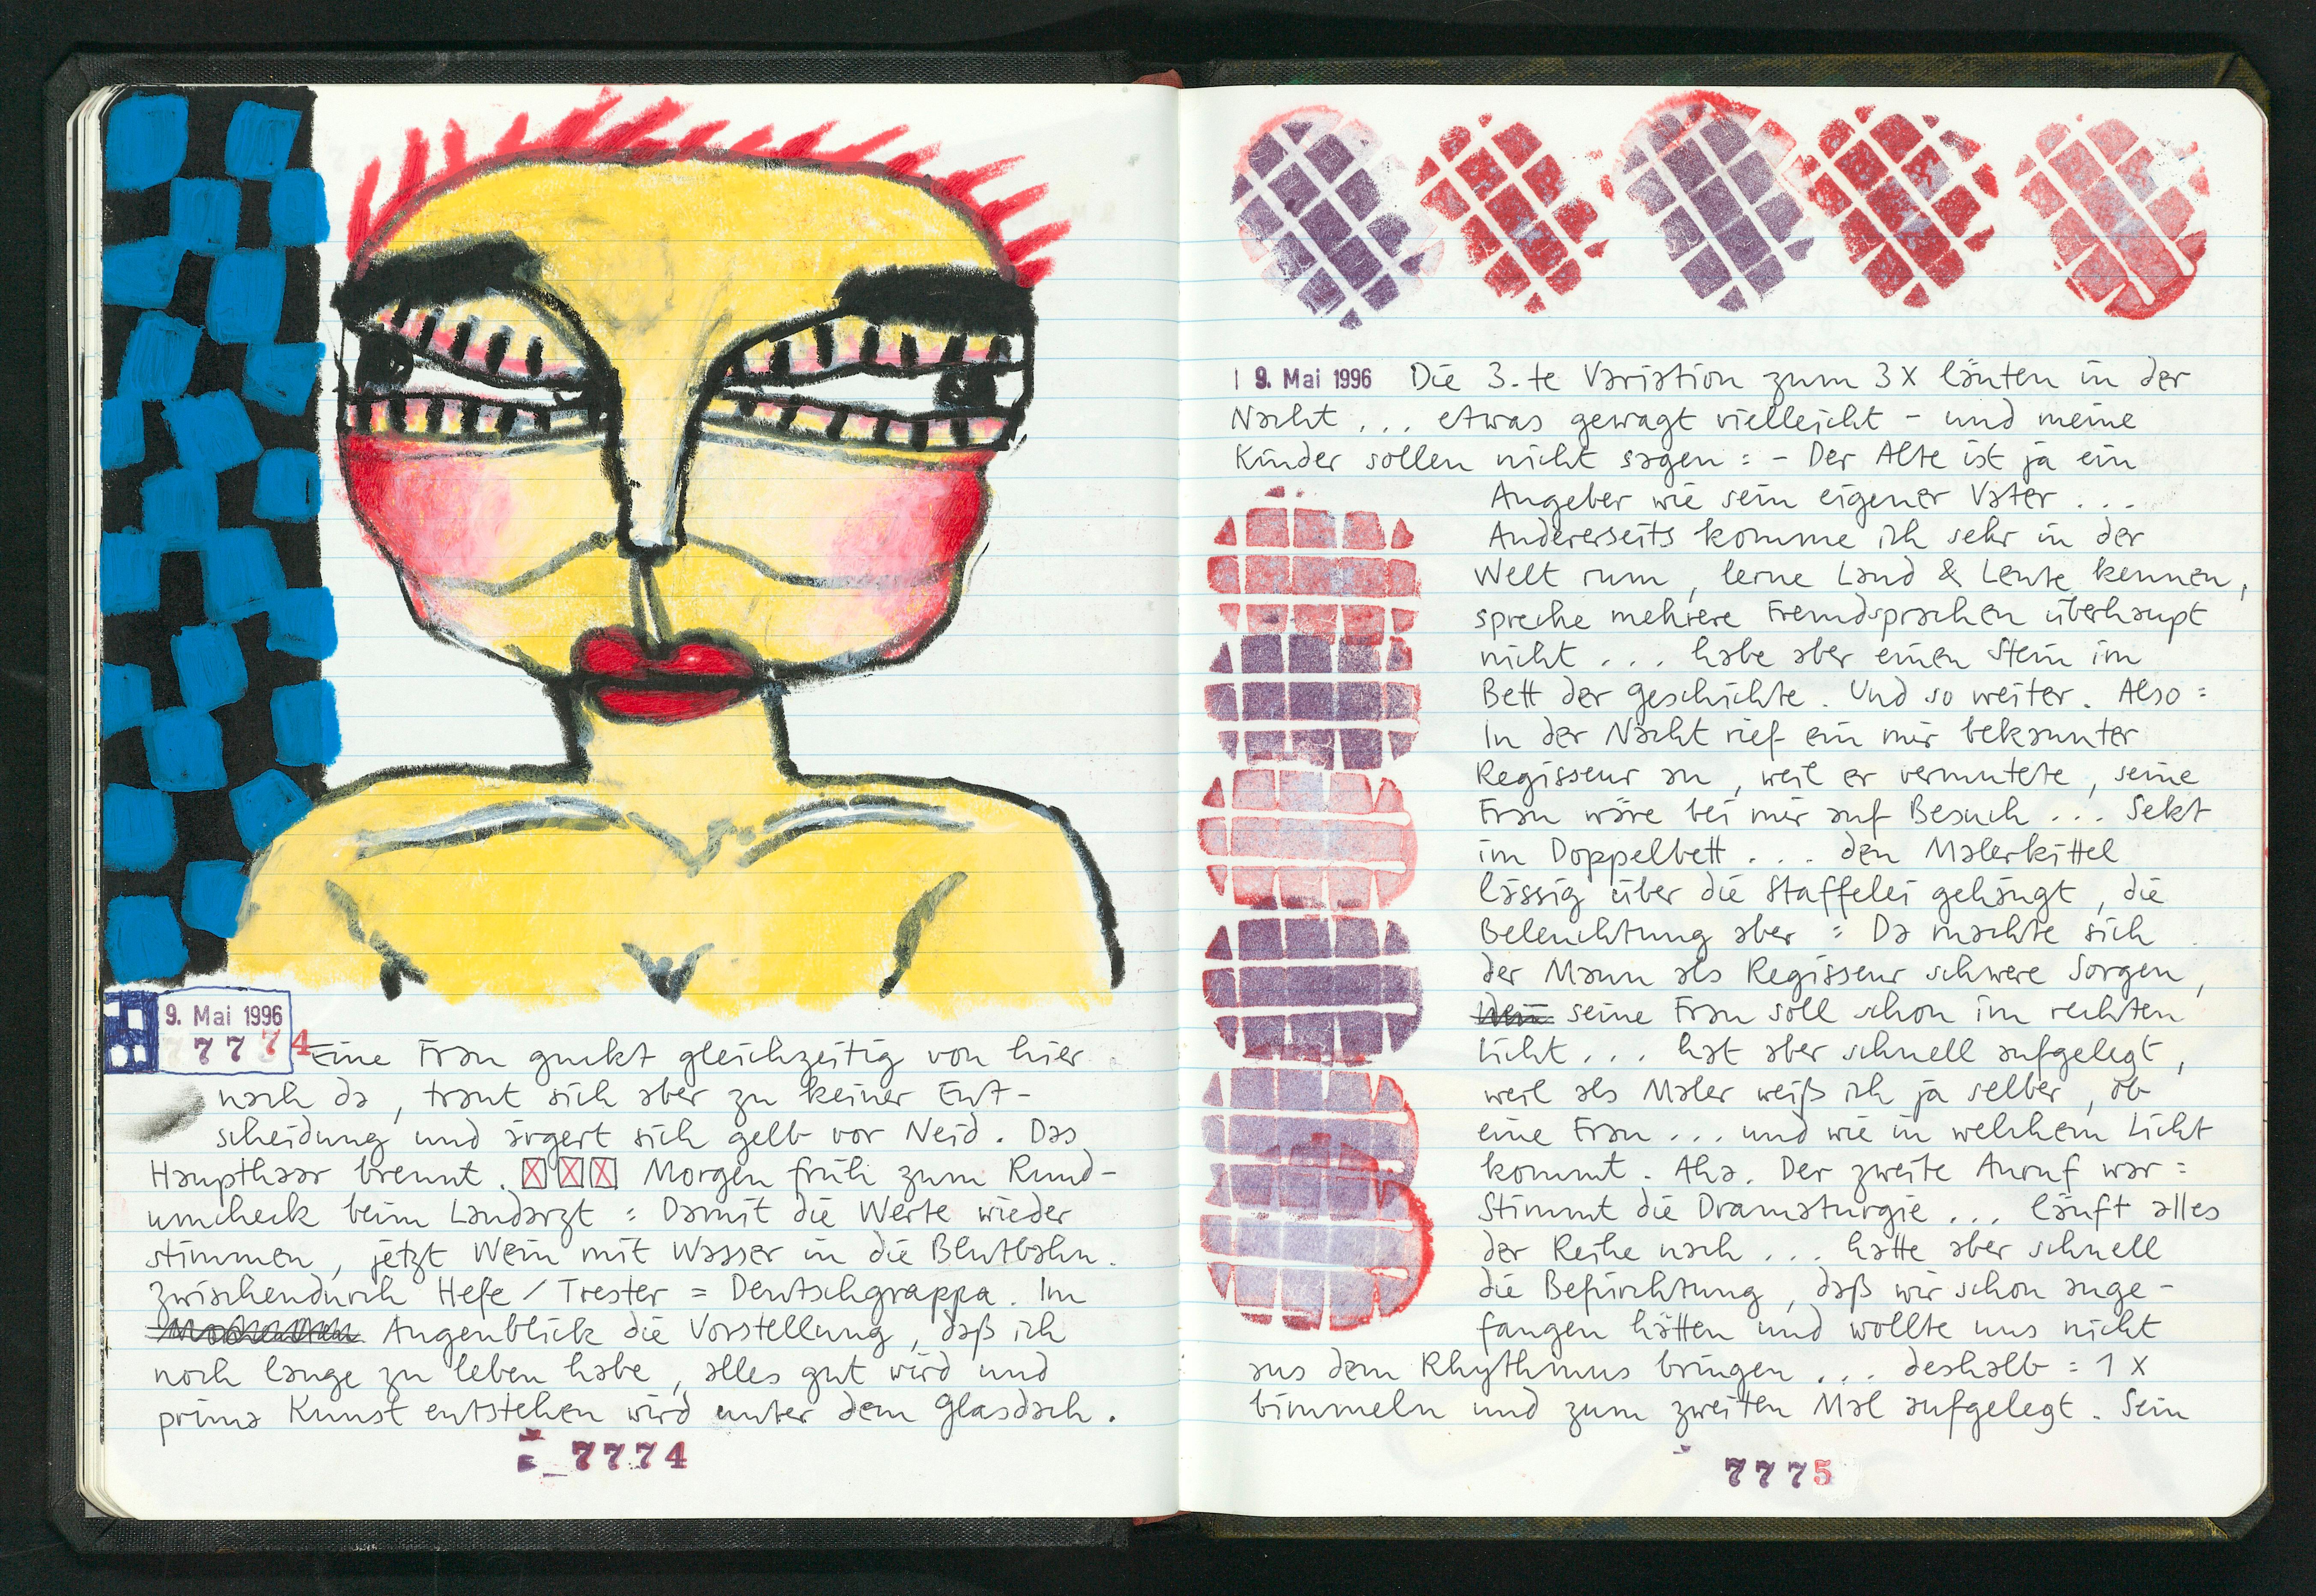 9. Mai 1996
7774
Eine Frau guckt gleichzeitig von hier
nach da, traut sich aber zu keiner Ent-
scheidung und ärgert sich gelb vor Neid. Das
Haupthaar brennt. Morgen früh zum Rund-
umcheck beim Landarzt : Damit die Werte wieder
stimmen, jetzt Wein mit Wasser in die Blutbahn.
zwischendurch Hefe / Trester = Deutschgrappa. Im
Augenblick die Vorstellung, daß ich
noch lange zu leben habe, alles gut wird und
prima Kunst entstehen wird unter dem Glasdach.
7774
9. Mai 1996 Die 3.te Variation zum 3X läuten in der
Nacht ... etwas gewagt vielleicht - und meine
Kinder sollen nicht sagen : - Der Alte ist ja ein
Angeber wie sein eigener Vater ...
Andererseits komme ich sehr in der
Welt rum, lerne Land & Leute kennen,
spreche mehrere Fremdsprachen überhaupt
nicht ... habe aber einen Stein im
Bett der Geschichte. Und so weiter. Also :
In der Nacht rief ein mir bekannter
Regisseur an, weil er vermutete, seine
Frau wäre bei mir auf Besuch ... Sekt
im Doppelbett ... den Malerkittel
lässig über die Staffelei gehängt, die
Beleuchtung aber : Da machte sich
der Mann als Regisseur schwere Sorgen,
seine Frau soll schon im rechten
Licht ... hat aber schnell aufgelegt,
weil als Maler weiß ich ja selber, ob
eine Frau ... und wie in welchem Licht
kommt. Aha. Der zweite Anruf war :
Stimmt die Dramaturgie ... läuft alles
der Reihe nach ... hatte aber schnell
die Befürchtung, daß wir schon ange-
fangen hätten und wollte uns nicht
aus dem Rhythmus bringen ... deshalb : 1 X
bimmeln und zum zweiten Mal aufgelegt. Sein
7775